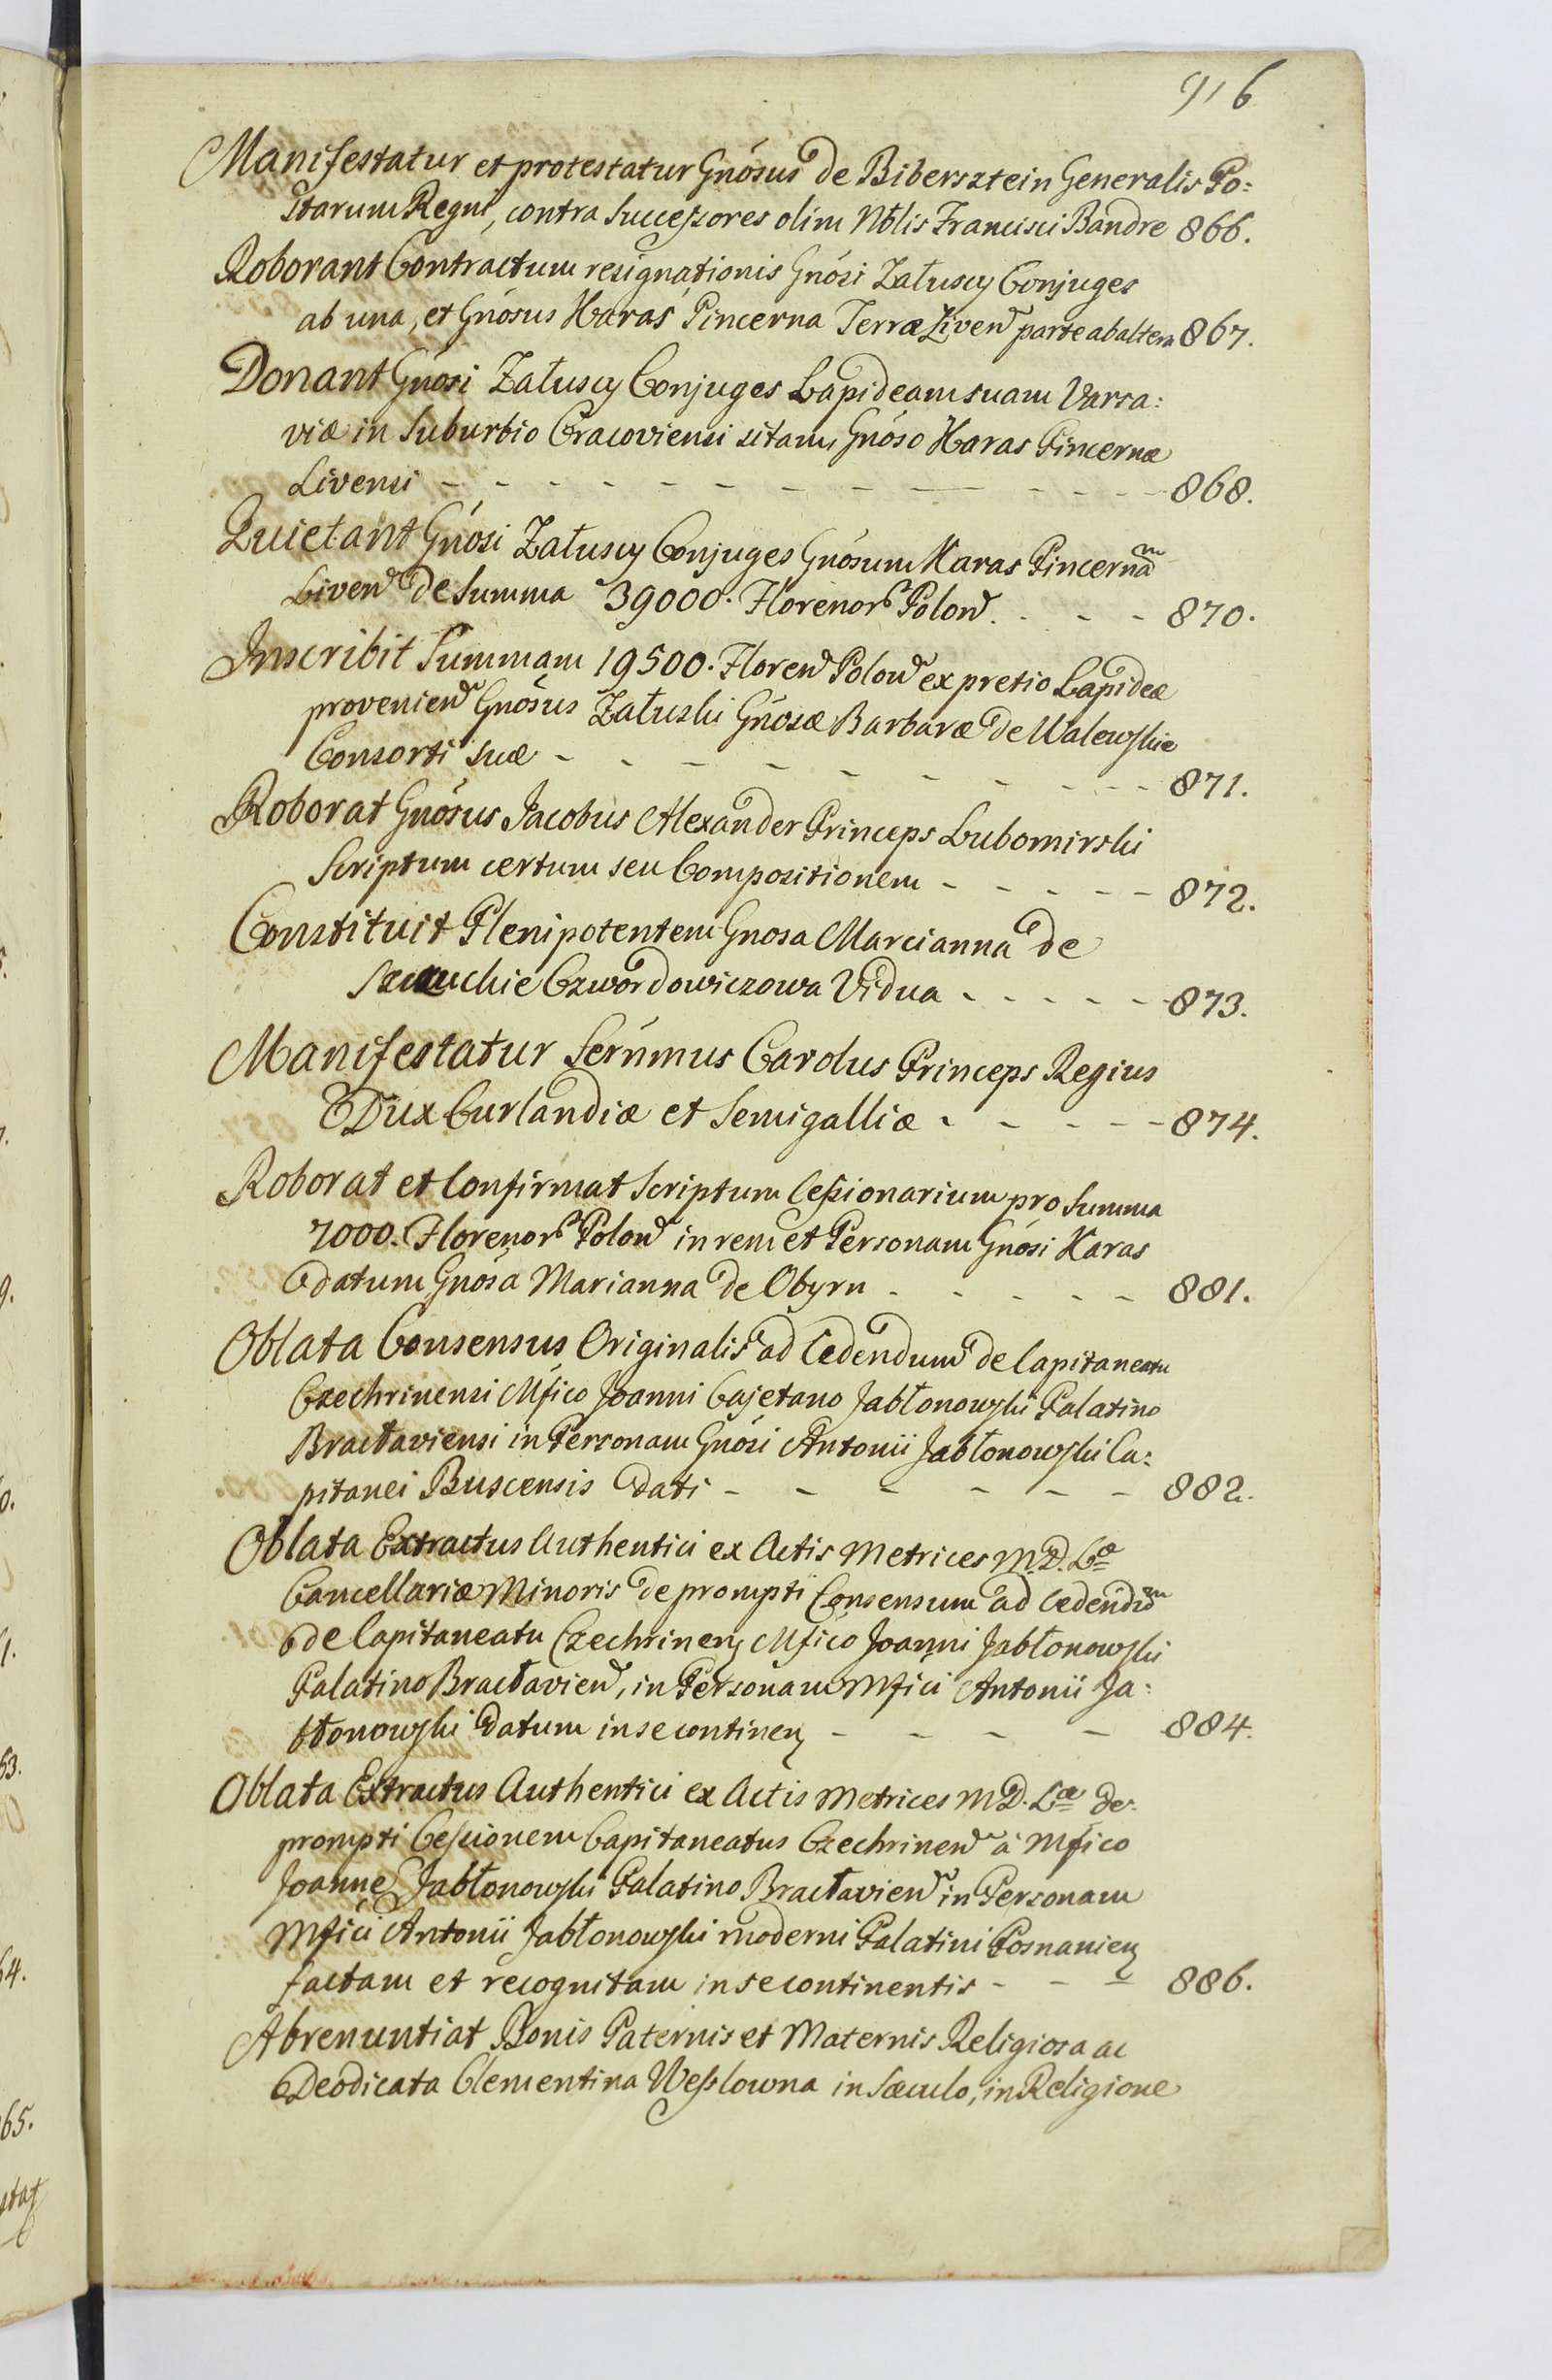 916
Manifestatur et protestatur Gnósus de Bibersztein Generalis Po:
starum Regni, contra Successores olim Nblis Francisci Bandre 866.
Roborant Contractum resignationis Gnósi Załuscy Conjuges
ab una, et Gnósus Karaś Pincerna Terræ Liven parte ab altera 867.
Donant Gnósi Załuscy Conjuges Lapideam suam Varsa:
viæ in Suburbio Cracoviensi sitam, Gnóso Karas Pincernæ
Livensi - - - - - - - - - - - - - 868.
Quietant Gnósi Załuscy Conjuges Gnósum Karas Pincernam
Liven de Summa 39000. Florenor Polon. - - - 870.
Inscribit Summam 19500. Floren Polon ex pretio Lapideæ
provenien Gnósus Załuski Gnósæ Barbaræ de Walewskie
Consorti suæ - - - - - - - - - - 871.
Roborat Gnósus Jacobus Alexander Princeps Lubomirski
Scriptum certum seu Compositionem - - - - - 872.
Constituit Plenipotentem Gnosa Marcianna de
Czwordowiczowa Vidua - - - - - 873.
Manifestatur Serńmus Carolus Princeps Regius
Dux Curlandiæ et Semigalliæ - - - - - 874.
Roborat et Confirmat Scriptum Cessionarium pro Summa
7000. Florenor Polon in rem et Personam Gnósi Karas
datum Gnósa Marianna de Obyrn - - - - - 881.
Oblata Consensus Originalis ad Cedendum de Capitaneatu
Czechrinensi Mfico Joanni Cajetano Jabłonowski Palatino
Bracłaviensi in Personam Gnósi Antonii Jabłonowski Ca:
pitanei Buscensis dati - - - - - - 882.
Oblata Extractus Authentici ex Actis Metrices M.D. Læ
Cancellariæ Minoris de prompti Consensum ad cedendum
de Capitaneatu Czechrinen Mfico Joanni Jabłonowski
Palatino Bracłavien, in Personam Mfici Antonii Ja:
błonowski datum in se continen - - - - 884.
Oblata Extractus Authentici ex Actis Metrices M.D. Læ de:
prompti Cessionem Capitaneatus Czechrinen à Mfico
Joanne Jabłonowski Palatino Bracłavien in Personam
Mfici Antonii Jabłonowski moderni Palatini Posnanien
factam et recognitam in se continentis - - - 886.
Abrenuntiat Bonis Paternis et Maternis Religiosa ac
Deodicata Clementina Wesslowna in Sæculo, in Religione